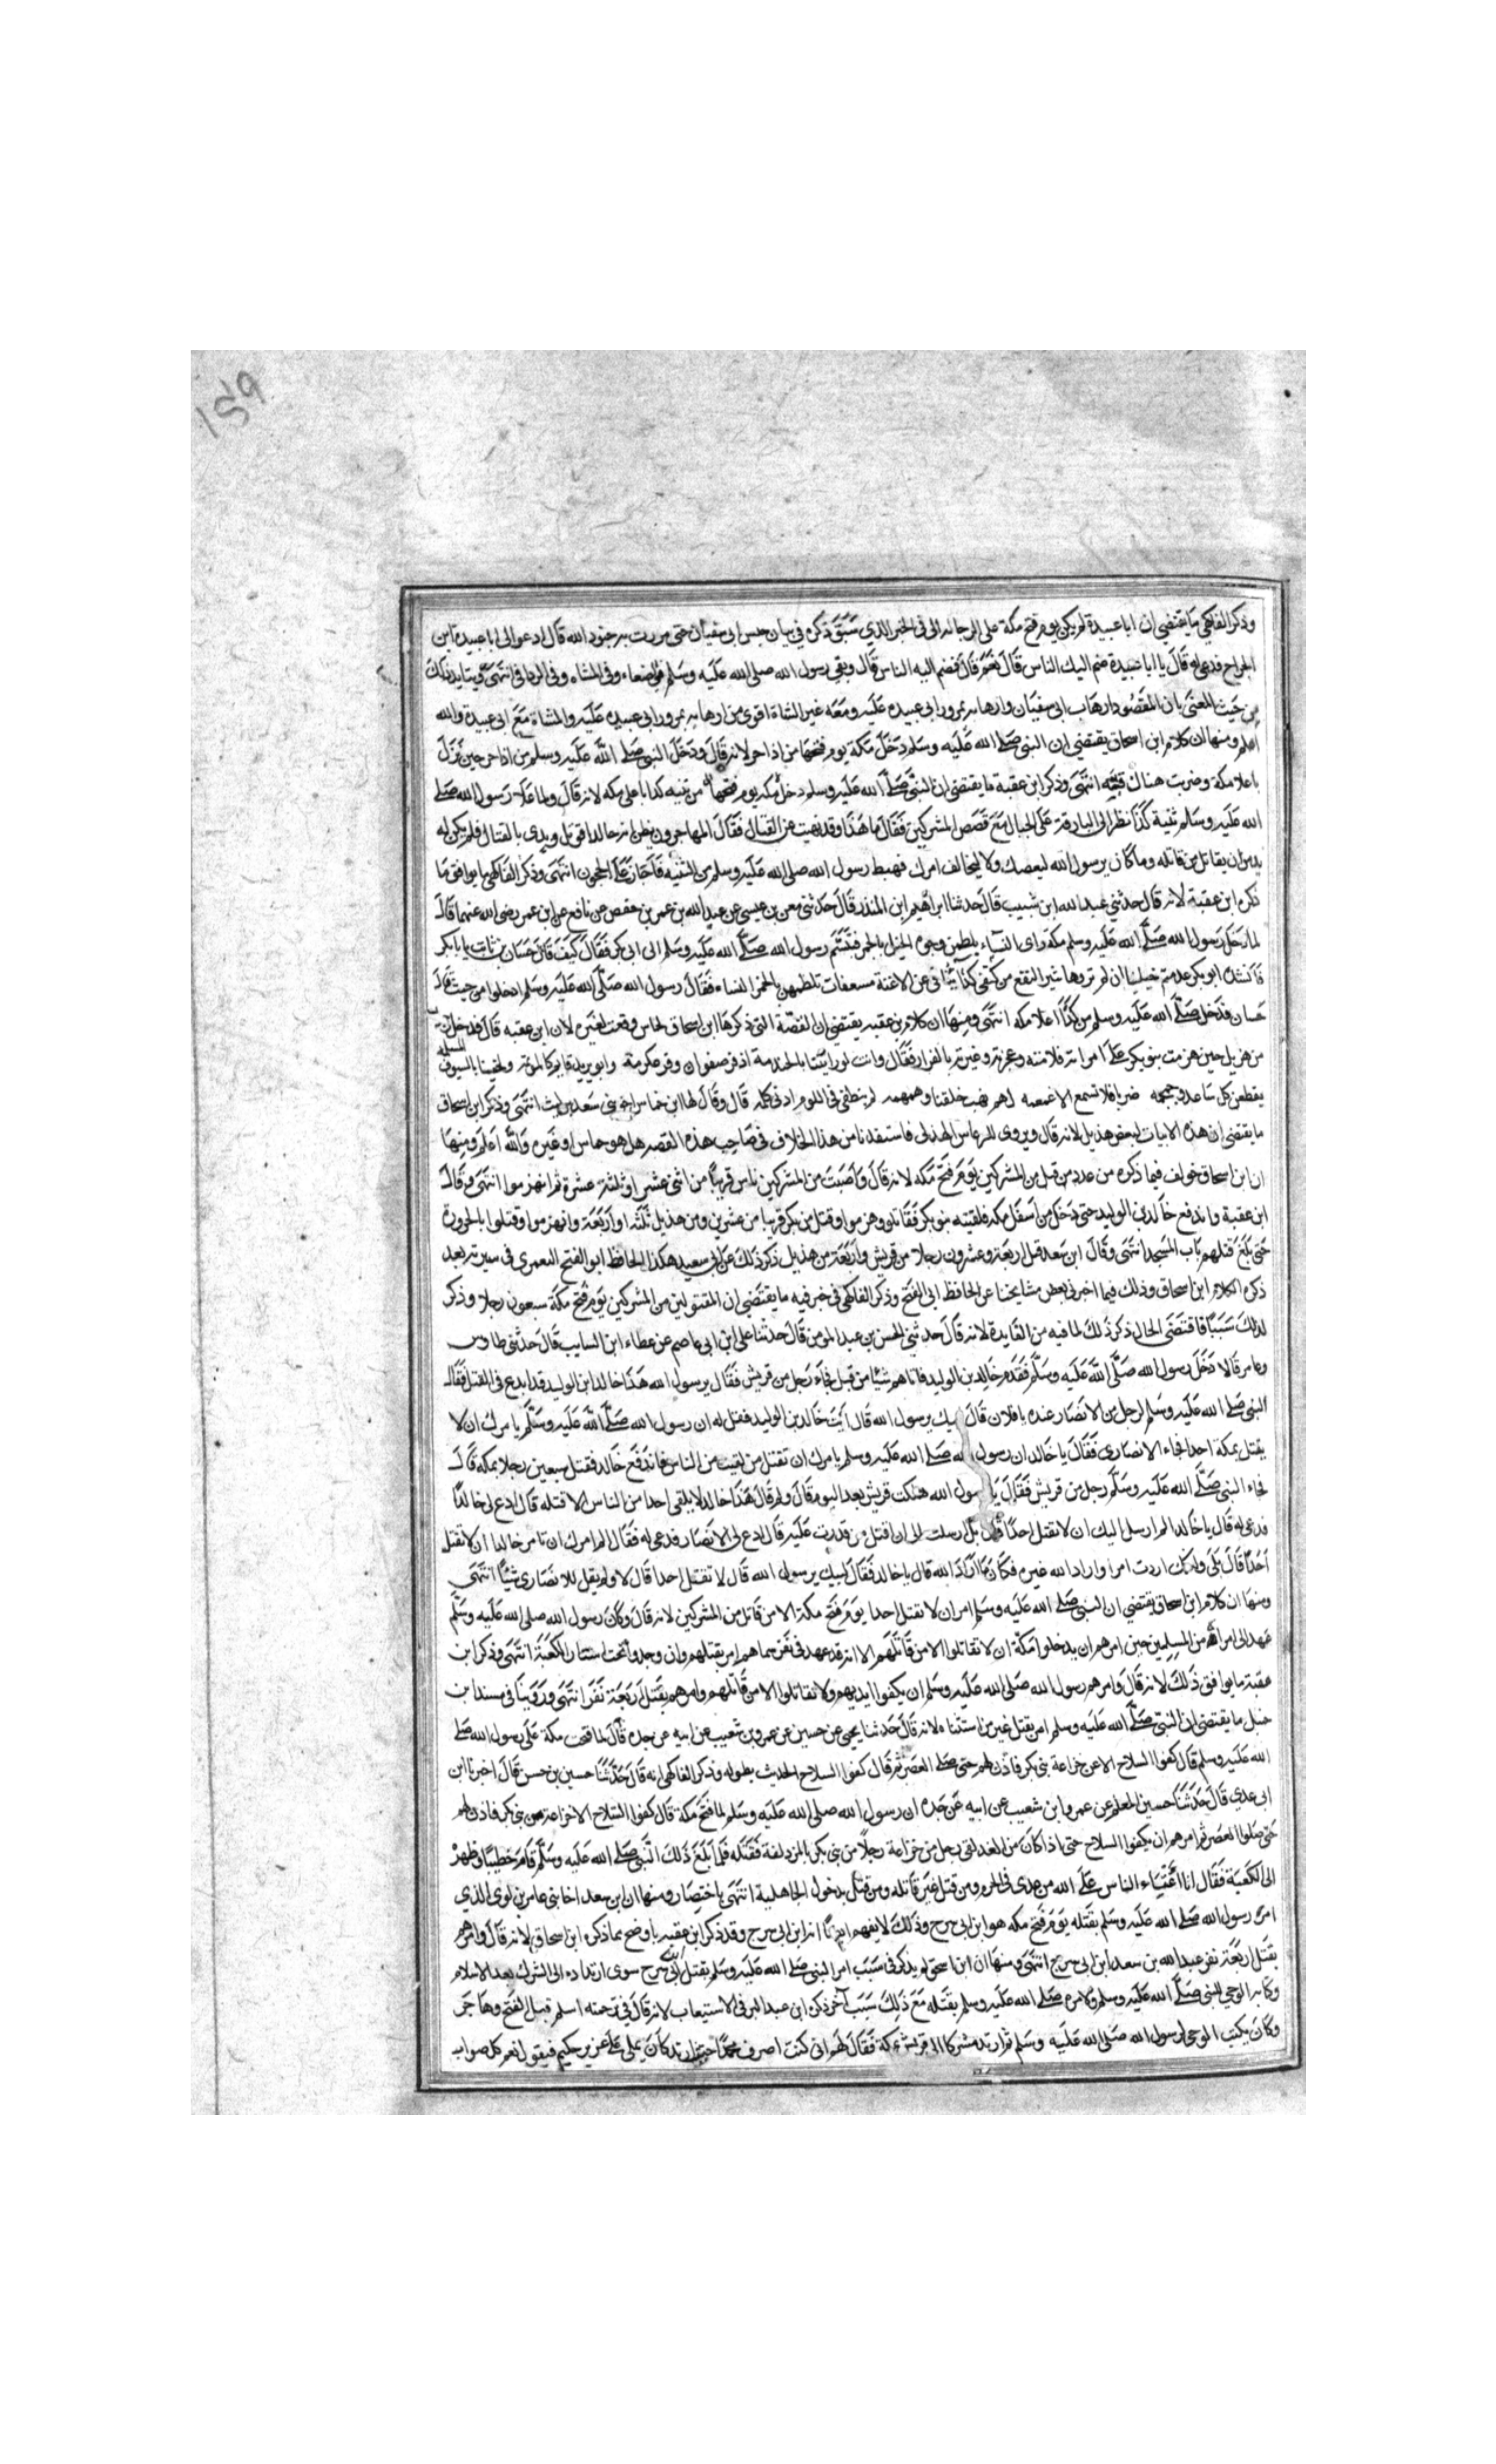 وذكر الفاكهي ما يقتضي ان ابا عبيدة لم يكن يوم فتح مكة على الرجالة الى في الخبر الذي سبق ذكره في بيان حبس ابى سفيان حتى مرت به جنود الله قال ادعوا لى ابا عبيدة ابن
الجراح فدعى له قال يا ابا عبيدة ضم اليك الناس قال نعم قال فضم اليه الناس قال وبقى رسول الله صلى الله عليه وسلم في وفى المشاه وفى الرجالة انتهى ويتايد ذلك
من حيث المعنى بان المقصود ارهاب ابى سفيان وارهابه بمرور ابى عبيده عليه ومعه غير المشاة اقوى من ارهابه بمرور ابى عبيده عليه والمشاة مع ابى عبيدة والله
اعلم ومنها ان كلام ابن اسحاق يقتضى ان النبى صلى الله عليه وسلم دخل مكة يوم فتحها من اذاخر لانه قال ودخل النبى صلى الله عليه وسلم من اذاخر حين نزل
باعلا مكة وضربت هناك قبته انتهى وذكر ابن عقبة ما يقتضى ان النبى صلى الله عليه وسلم دخل مكه يوم فتحها من ثنيه كدا باعلى مكه لانه قال ولما علا رسول الله صلى
الله عليه وسلم ثنية كدا نظر الى البارقة على الجبال مع قصص المشركين فقال ما هذا وقد نهيت عن القتال فقال المهاجرون نظن ان خالدا قوتل وبدى بالقتال فلم يكن له
بد من ان يقاتل من قاتله وما كان يرسول الله ليعصيك ولا ليخالف امرك فهبط رسول الله صلى الله عليه وسلم من الثنيه فاجاز على الحجون انتهى وذكر الفاكهى ما يوافق ما
ذكره ابن عقبة لانه قال حدثني عبد الله ابن شبيب قال حدثنا ابراهيم ابن المنذر قال حدثنى معن بن عيسى عن عبد الله بن عمر بن حفص عن نافع عن ابن عمر رضى الله عنهما قال
لما دخل رسول الله صلى الله عليه وسلم مكة راى النساء يلطمن وجوه الخيل بالخمر فتبسم رسول الله صلى الله عليه وسلم الى ابى بكر فقال كيف قال حسان بن ثابت يا بابكر
فانشده ابو بكر عدمت خيلنا ان لم تروها تثير النقع من كتفى كدا ينازعن الاعنة مسعفات تلطمهن بالخمر النساء فقال رسول الله صلى الله عليه وسلم ادخلوا من حيث قال
حسان فدخل صلى الله عليه وسلم من كدا اعلا مكه انتهى ومنها ان كلام بن عقبه يقتضى ان القصة التى ذكرها ابن اسحاق لحماس وقعت لغيره لان ابن عقبه قال فدخل
من هذيل حين هزمت بنو بكر على امراته فلامته وعجزته وعيرته بالفرار فقال وانت لو رايتنا بالخندمة اذ فر صفوان وفر عكرمة وابو يزيد قايم كالموتمه ولحقتنا بالسيوف المسلمه
يقطعن كل ساعد وجمجمه ضربا فلا تسمع الا غمغمه لهم نهيت خلفنا وهمهمه لم تنطقى فى اللوم ادنى كلمه قال وقال لها ابن حماس اخو بنى سعد بن ليث انتهى وذكر ابن اسحاق
ما يقتضى ان هذه الابيات لبعض هذيل لانه قال ويروى للرعاس الهذلى فاستفدنا من هذا الخلاف فى صاحب هذه القصه هل هو حماس او غيره والله اعلم ومنها
ان ابن اسحاق خولف فيما ذكره من عدد من قتل من المشركين يوم فتح مكه لانه قال واصيب من المشركين ناس قريبا من اثنى عشر او ثلثة عشرة ثم انهزموا انتهى وقال
ابن عقبة واندفع خالد بن الوليد حتى دخل من اسفل مكه فلقيته بنو بكر فقاتلوه وهزموا وقتل من بكر قريبا من عشرين ومن هذيل ثلثه او اربعة وانهزموا وقتلوا بالحزورة
حتى بلغ قتلهم باب المسجد انتهى وقال ابن سعد قتل اربعة وعشرون رجلا من قريش واربعة من هذيل ذكر ذلك عن ابى سعيد هكذا الحافظ ابو الفتح اليعمرى فى سيرته بعد
ذكره الكلام ابن اسحاق وذلك فيما اخبرنى بعض مشايخنا عن الحافظ ابى الفتح وذكر الفاكهى فى خبر فيه ما يقتضى ان المقتولين من المشركين يوم فتح مكة سبعون رجلا وذكر
لذلك سببا فاقتضى الحال ذكر ذلك لما فيه من الفايدة لانه قال حدثنى الحسن بن عبد المومن قال حدثنا على ابن ابى عاصم عن عطاء ابن السايب قال حدثنى طاوس
وعامر قالا دخل رسول الله صلى الله عليه وسلم فقدم خالد بن الوليد فانالهم شيئا من قتل فجاء رجل من قريش فقال يرسول الله هذا خالد ابن الوليد قد ابدع فى القتل فقال
النبى صلى الله عليه وسلم لرجل من الانصار عنده يا فلان قال لبيك يرسول الله قال ايت خالد بن الوليد فقل له ان رسول الله صلى الله عليه وسلم يامرك ان لا
يقتل بمكة احدا فجاء الانصارى فقال يا خالد ان رسول الله صلى الله عليه وسلم يامرك ان تقتل من لقيت من الناس فاندفع خالد فقتل سبعين رجلا بمكه قال
فجاء النبى صلى الله عليه وسلم رجل من قريش فقال يا رسول الله هلكت قريش بعد اليوم قال ولم قال هذا خالد لا يلقى احدا من الناس الا قتله قال ادع لى خالدا
فدعى له قال يا خالد الم ارسل اليك ان لا تقتل احدا قال بل ارسلت الى ان اقتل من قدرت عليه قال ادع لى الانصار فدعى له فقال الم امرك ان تامر خالدا ان لا تقتل
احدا قال بلى ولكنك اردت امرا واراد الله غيره فكان ما اراد الله قال يا خالد فقال لبيك يرسول الله قال لا تقتل احدا قال لا ولم يقل للانصارى شيئا انتهى
ومنها ان كلام ابن اسحاق يقتضى ان النبى صلى الله عليه وسلم امر ان لا تقتل احدا يوم فتح مكة الا من قاتل من المشركين لانه قال وكان رسول الله صلى الله عليه وسلم
عهد الى امرائه من المسلمين حين امرهم ان يدخلوا مكة ان لا تقاتلوا الا من قاتلهم الا انه قد عهد فى نفر سماهم امر بقتلهم وان وجدوا تحت استار الكعبة انتهى وذكر ابن
عقبة ما يوافق ذلك لانه قال وامرهم رسول الله صلى الله عليه وسلم ان يكفوا ايديهم ولا تقاتلوا الا من قاتلهم وامرهم بقتل اربعة نفر انتهى وروينا فى مسند ابن
حنبل ما يقتضى ان النبى صلى الله عليه وسلم امر بقتل غير من استثناه لانه قال حدثنا يحيى عن حسين عن عمرو بن شعيب عن ابيه عن جده قال لما فتحت مكة على رسول الله صلى
الله عليه وسلم قال كفوا السلاح الا عن خزاعة بنى بكر فاذن لهم حتى صلى العصر ثم قال كفوا السلاح الحديث بطوله وذكر الفاكهى انه قال حدثنا حسين بن حسن قال اخبرنا ابن
ابى عدى قال حدثنا حسين المعلم عن عمرو ابن شعيب عن ابيه عن جده ان رسول الله صلى الله عليه وسلم لما فتح مكة قال كفوا السلاح الا خزاعة عن بنى بكر فاذن لهم
حتى صلوا العصر ثم امرهم ان يكفوا السلاح حتى اذا كان من الغد لقى رجل من خزاعة رجلا من بنى بكر بالمزدلفة فقتله فلما بلغ ذلك النبى صلى الله عليه وسلم قام خطيبا وظهره
الى الكعبة فقال ان اعتى الناس على الله من عدى فى الحرم ومن قتل غير قاتله ومن قتل بدخول الجاهلية انتهى باختصار ومنها ان ابن سعد اخا بنى عامر بن لوى الذى
امر رسول الله صلى الله عليه وسلم بقتله يوم فتح مكه هو ابن ابى سرح وذلك لا يفهم انه ابن ابى سرح وقد ذكر ابن عقبه باوضح مما ذكره ابن اسحاق لانه قال وامرهم
بقتل اربعة نفر عبد الله بن سعد ابن ابى سرح انتهى ومنها ان ابن اسحق لم يذكر فى سبب امر النبى صلى الله عليه وسلم بقتل ابن ابى سرح سوى ارتداده الى الشرك بعد الاسلام
وكتابه الوحى للنبى صلى الله عليه وسلم ولامره صلى الله عليه وسلم بقتله مع ذلك سبب آخر ذكره ابن عبد البر فى الاستيعاب لانه قال فى ترجمته اسلم قبل الفتح وهاجر
وكان يكتب الوحى لرسول الله صلى الله عليه وسلم ثم ارتد مشركا الى قريش بمكة فقال لهم انى كنت اصرف محمدا حيث اريد كان يملى على عزيز حكيم فيقول نعم كل صواب